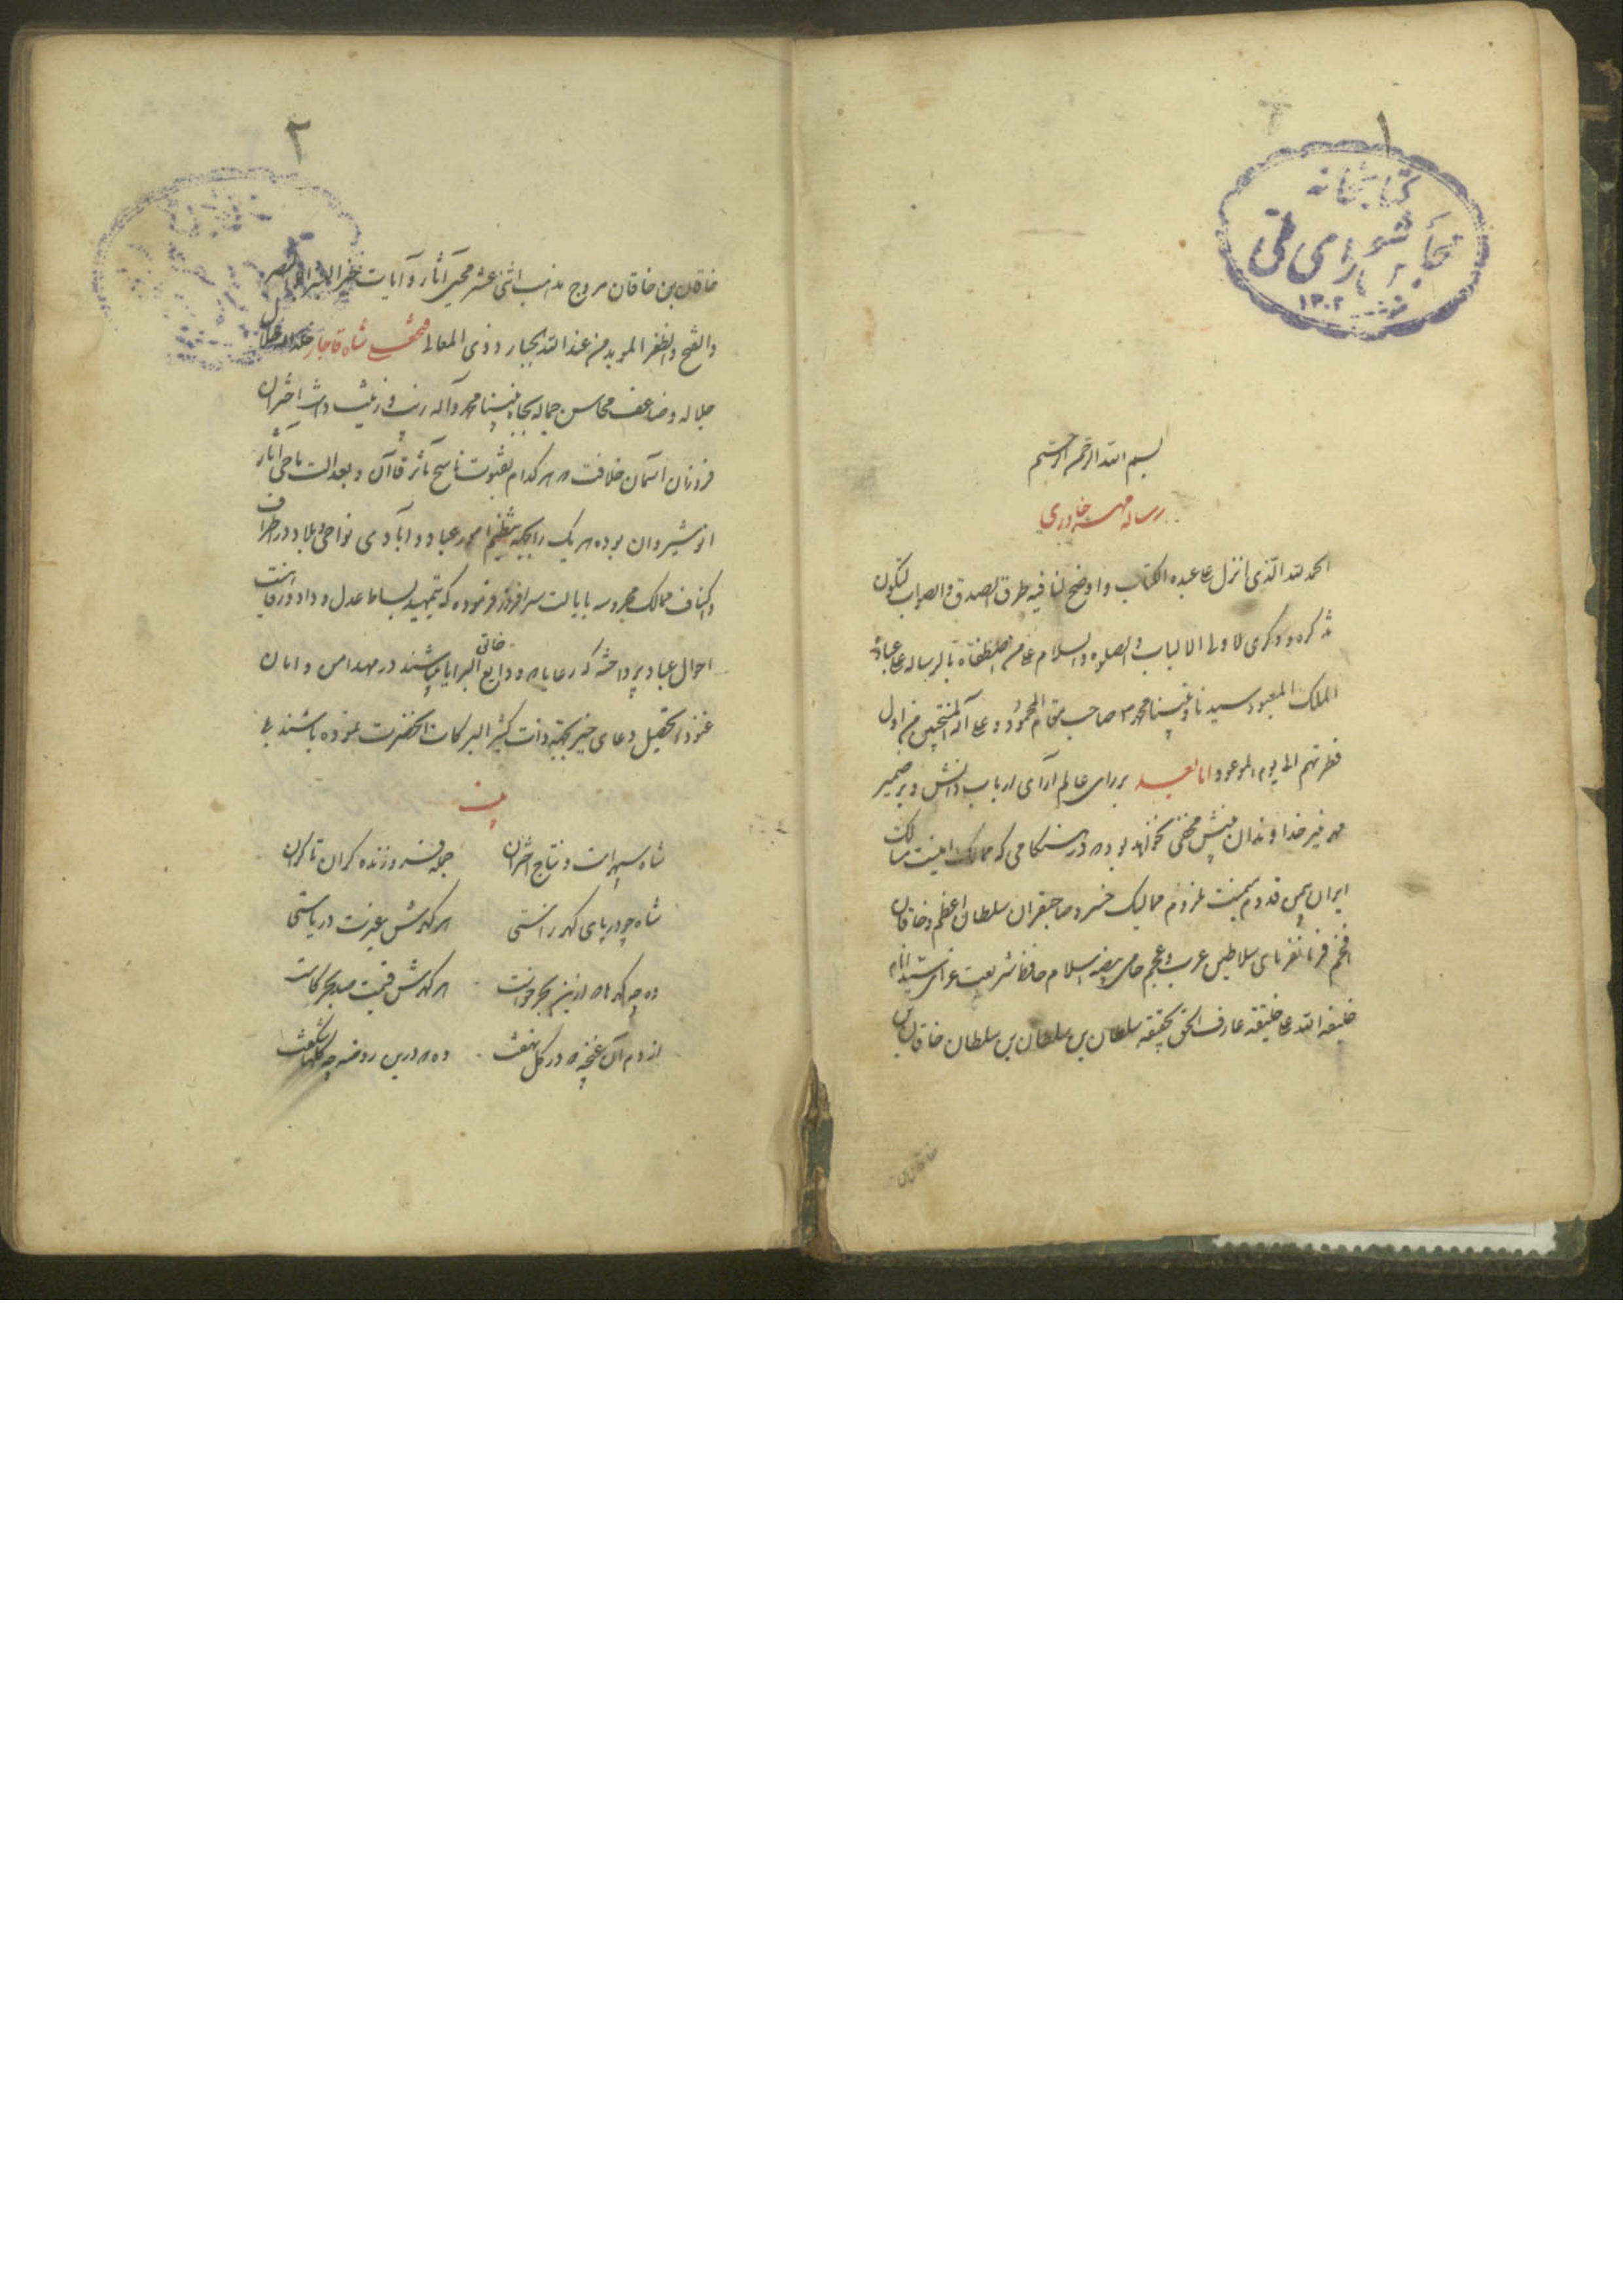 ۱
کتابخانه
مجلس شورای ملی
۱۳۰۲
بسم الله الرحمن الرحیم
رساله مهر خاوری
الحمد لله الذی انزل علی عبده الکتاب و اوضح لنا فیه طرق الصدق و الصواب لیکون
تذکره و ذکری لاولی الالباب و الصلوه و السلام علی من اصطفاه بالرساله علی عباده
الملک المعبود سیدنا و نبینا محمد صاحب مقام المحمود و علی آله المنتجبین من اول
فطرتهم الی یوم الموعود اما بعد بر رای عالم آرای ارباب دانش و بر ضمیر
مهر تنویر خداوندان بینش مخفی نخواهد بود که در هنگامی که ممالک امنیت مسالک
ایران بیمن قدوم میمنت لزوم ممالیک خسرو صاحبقران سلطان اعظم و خاقان
افخم فرمانفرمای سلاطین عرب و عجم حامی بیضه اسلام حافظ شریعت غرای سید انام
خلیفه الله علی خلیقته عارف الحق بحقیقته سلطان بن سلطان بن سلطان خاقان بن
خاقان بن
۲
خاقان بن خاقان مروج مذهب اثنی عشر محیی آثار و آیات خیر البشر ابو النصر
و الفتح و الظفر الموید من عند الله الجبار و ذی المعالی فتحعلی شاه قاجار خلد الله ظلال
جلاله و ضاعف محاسن جماله بجاه نبینا محمد و آله زیب و زینت داشت اختران
فروزان آسمان خلافت که هر کدام بفتوت ناسخ مآثر قاآن و بعدالت ماحی آثار
انوشیروان بوده هر یک را بجهة تنظیم امور عباد و آبادی نواحی و بلاد در اطراف
و اکناف ممالک محروسه بایالت سرافراز فرموده که بتمهید بساط عدل و داد و رفاهیت
احوال عباد پرداخته که رعایا که ودایع خالق البرایا میباشند در مهد امن و امان
غنوده بتحصیل دعای خیر بجهة ذات کثیر البرکات آنحضرت نموده باشند
بیت
شاه سپهر است و نتاج اختران
جمله فروزنده کران تا کران
شاه چو دریای گهر راستی
هر گهرش بعزت دریاستی
وه چه گهرها که ازین بحر خواست
هر گهرش قیمت صد بحر کاست
از دم آن غنچه که در گل نهفت
وه که درین روضه چه گلها شکفت